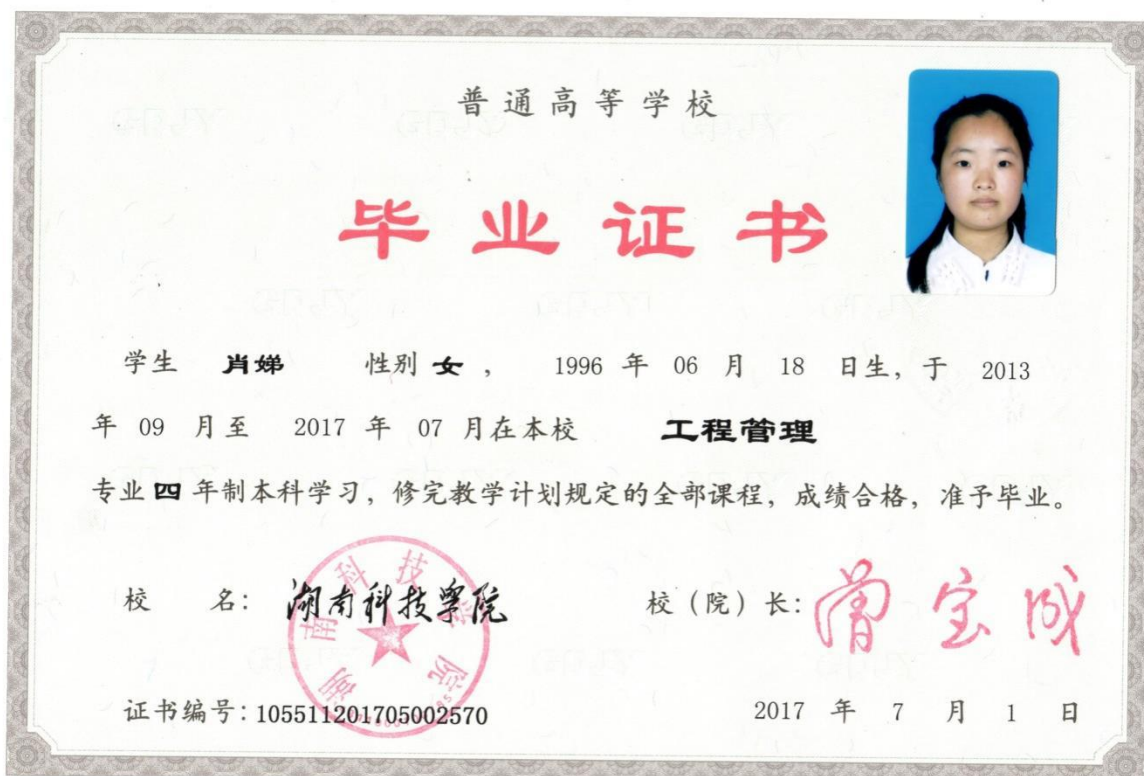 普通高等学校
毕业证书
学生 肖娣 性别 女 ， 1996 年 06 月 18 日生，于 2013
年 09 月至 2017 年 07 月在本校 工程管理
专业 四 年制本科学习，修完教学计划规定的全部课程，成绩合格，准予毕业。
校 名：湖南科技学院 校（院）长：曾宝成
湖南科技学院
证书编号：105511201705002570 2017 年 7 月 1 日